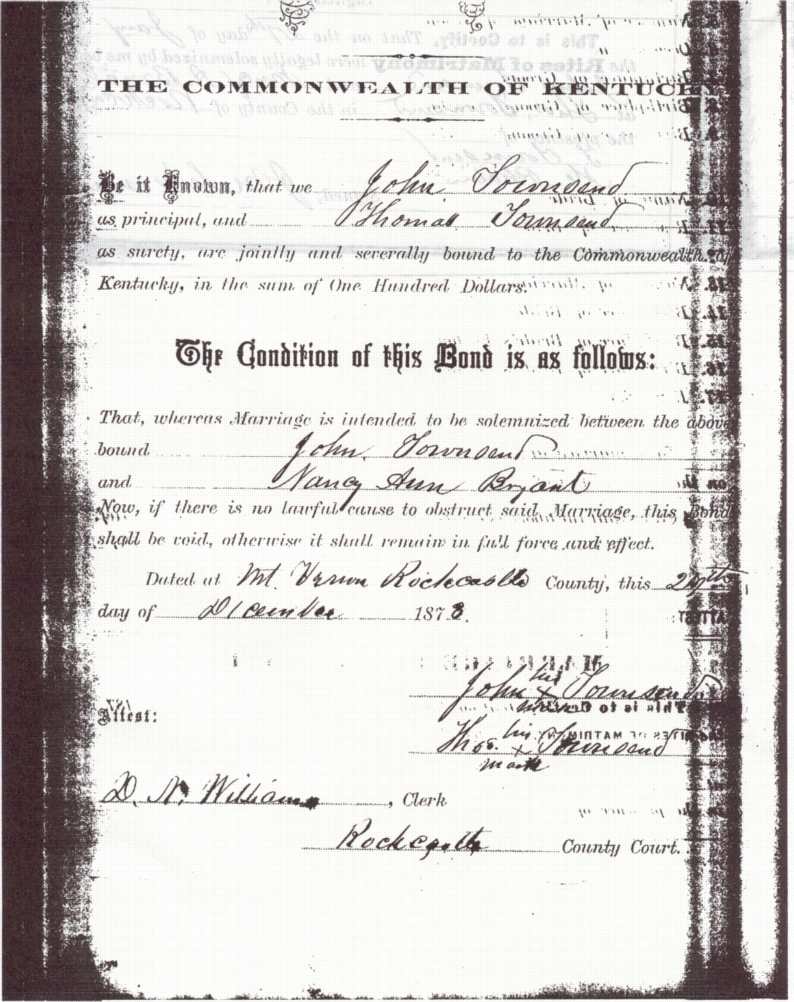 THE COMMONWEALTH OF KENTUCKY
Be it Known, that we John Townsend
as principal, and Thomas Townsend
as surety, are jointly and severally bound to the Commonwealth of
Kentucky, in the sum of One Hundred Dollars.
The Condition of this Bond is as follows:
That, whereas Marriage is intended to be solemnized between the above
bound John Townsend
and Nancy Ann Bryant
Now, if there is no lawful cause to obstruct said Marriage, this Bond
shall be void, otherwise it shall remain in full force and effect.
Dated at Mt. Vernon Rockcastle County, this
day of December 1878.
John his x Townsend
Attest:
Thos. his x Townsend
mark
D. N. Williams, Clerk
Rockcastle County Court.